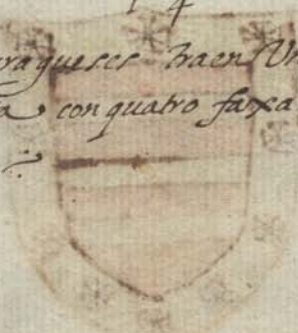 14
raqueses traen Un
a con quatro faxa